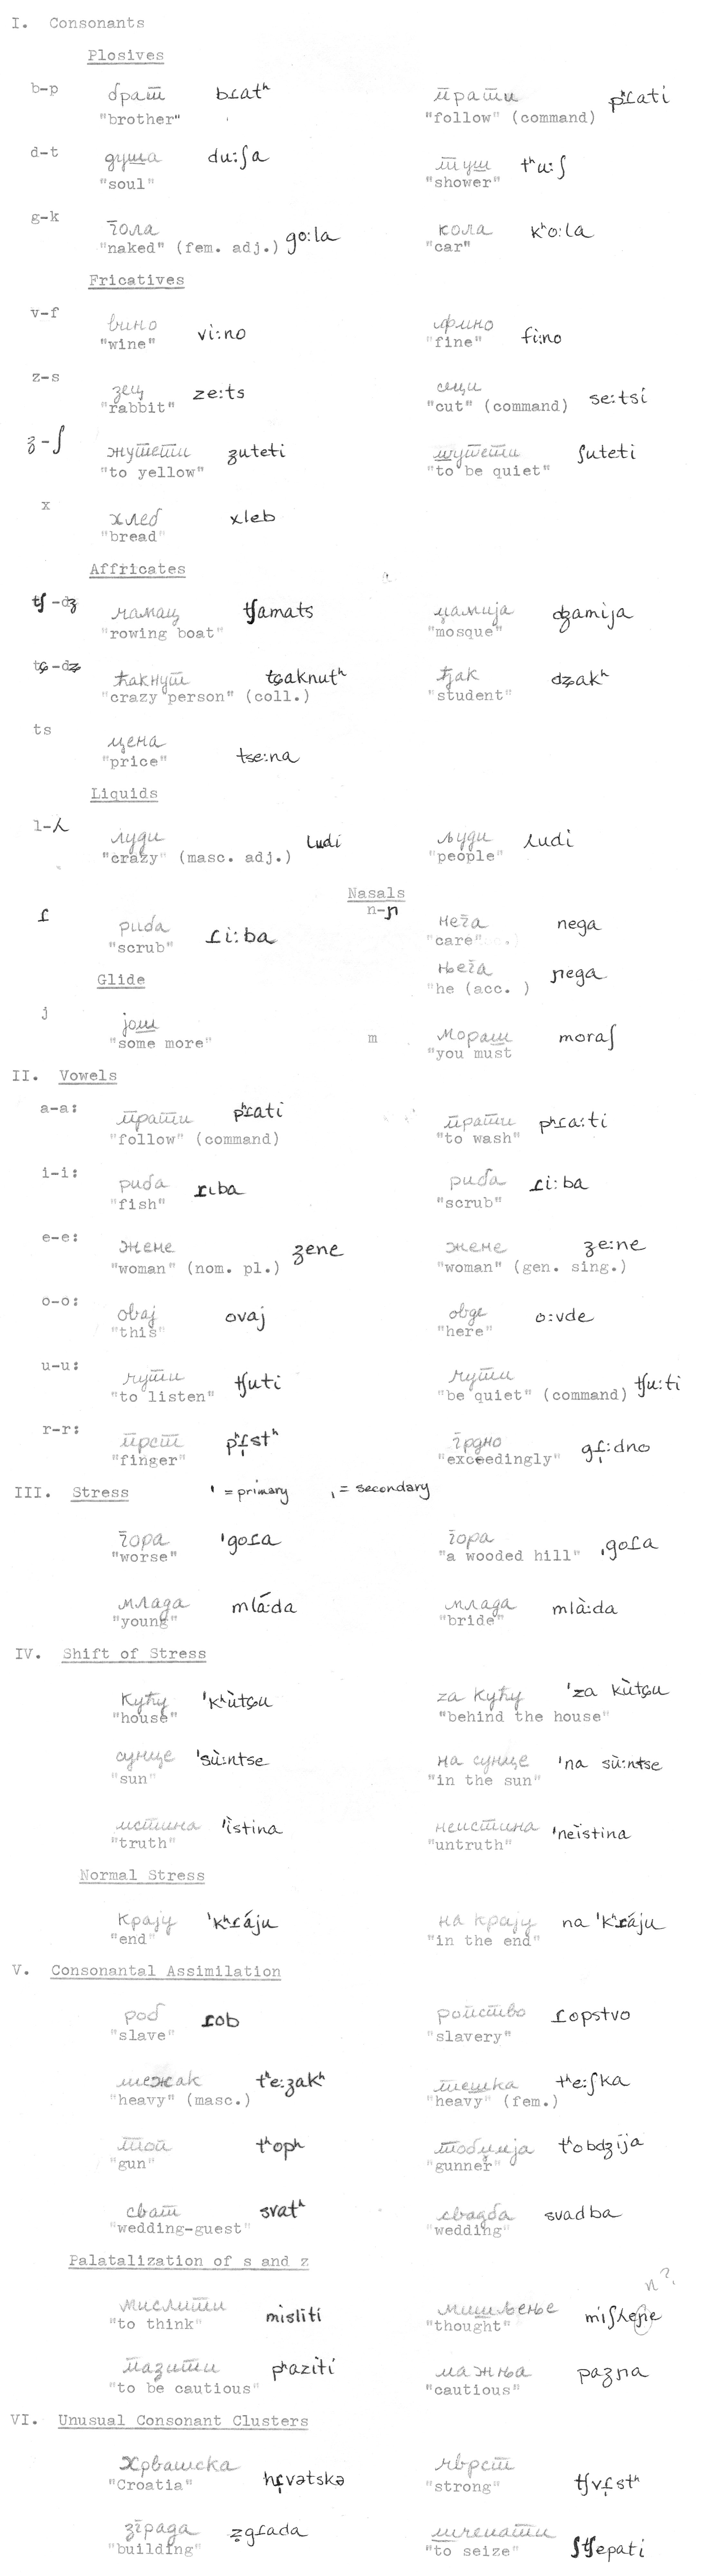 I. Consonants
Plosives
b-p брат bɾatʰ прати pʰɾati
"brother" "follow" (command)
d-t душа du:ʃa туш tʰu:ʃ
"soul" "shower"
g-k гола go:la кола kʰo:la
"naked" (fem. adj.) "car"
Fricatives
v-f вино vi:no фино fi:no
"wine" "fine"
z-s зец ze:ts сеци se:tsi
"rabbit" "cut" (command)
ʒ-ʃ жутети ʒuteti шутети ʃuteti
"to yellow" "to be quiet"
x хлеб xleb
"bread"
Affricates
tʃ-dʒ чамац tʃamats џамија dʒamija
"rowing boat" "mosque"
tɕ-dʑ ћакнут tɕaknutʰ ђак dʑakʰ
"crazy person" (coll.) "student"
ts цена tse:na
"price"
Liquids
l-ʎ луди ludi људи ʎudi
"crazy" (masc. adj.) "people"
Nasals
ɾ риба ɾi:ba n-ɲ нега nega
"scrub" "care"
Glide њега ɲega
"he (acc. )
j још m мораш moraʃ
"some more" "you must
II. Vowels
a-a: прати pʰɾati прати pʰɾa:ti
"follow" (command) "to wash"
i-i: риба ɾɩba риба ɾi:ba
"fish" "scrub"
e-e: жене ʒene жене ʒe:ne
"woman" (nom. pl.) "woman" (gen. sing.)
o-o: овај ovaj овде o:vde
"this" "here"
u-u: чути tʃuti чути tʃu:ti
"to listen" "be quiet" (command)
r-r: прст pʰɾ̩stʰ грдно gɾ̩:dno
"finger" "exceedingly"
III. Stress ˈ = primary ˌ = secondary
гора ˈgoɾa гора ˌgoɾa
"worse" "a wooded hill"
млада mlá:da млада mlà:da
"young" "bride"
IV. Shift of Stress
кућу ˈkʰùtɕu за кућу ˈza kùtɕu
"house" "behind the house"
сунце ˈsù:ntse на сунце ˈna sù:ntse
"sun" "in the sun"
истина ˈìstina неистина ˈneìstina
"truth" "untruth"
Normal Stress
крају ˈkʰɾáju на крају na ˈkʰɾáju
"end" "in the end"
V. Consonantal Assimilation
роб ɾob ропство ɾopstvo
"slave" "slavery"
тежак tʰe:ʒakʰ тешка tʰe:ʃka
"heavy" (masc.) "heavy" (fem.)
топ tʰopʰ тобџија tʰobdʒija
"gun" "gunner"
сват svatʰ свадба svadba
"wedding-guest" "wedding"
Palatalization of s and z
n?
мислити misliti мишљење miʃʎeɲe
"to think" "thought"
пазити pʰaziti пажња paʒna
"to be cautious" "cautious"
VI. Unusual Consonant Clusters
Хрватска hɾ̩vətskə чврст tʃvɾ̩stʰ
"Croatia" "strong"
зграда zgɾada шчепати ʃtʃepati
"building" "to seize"